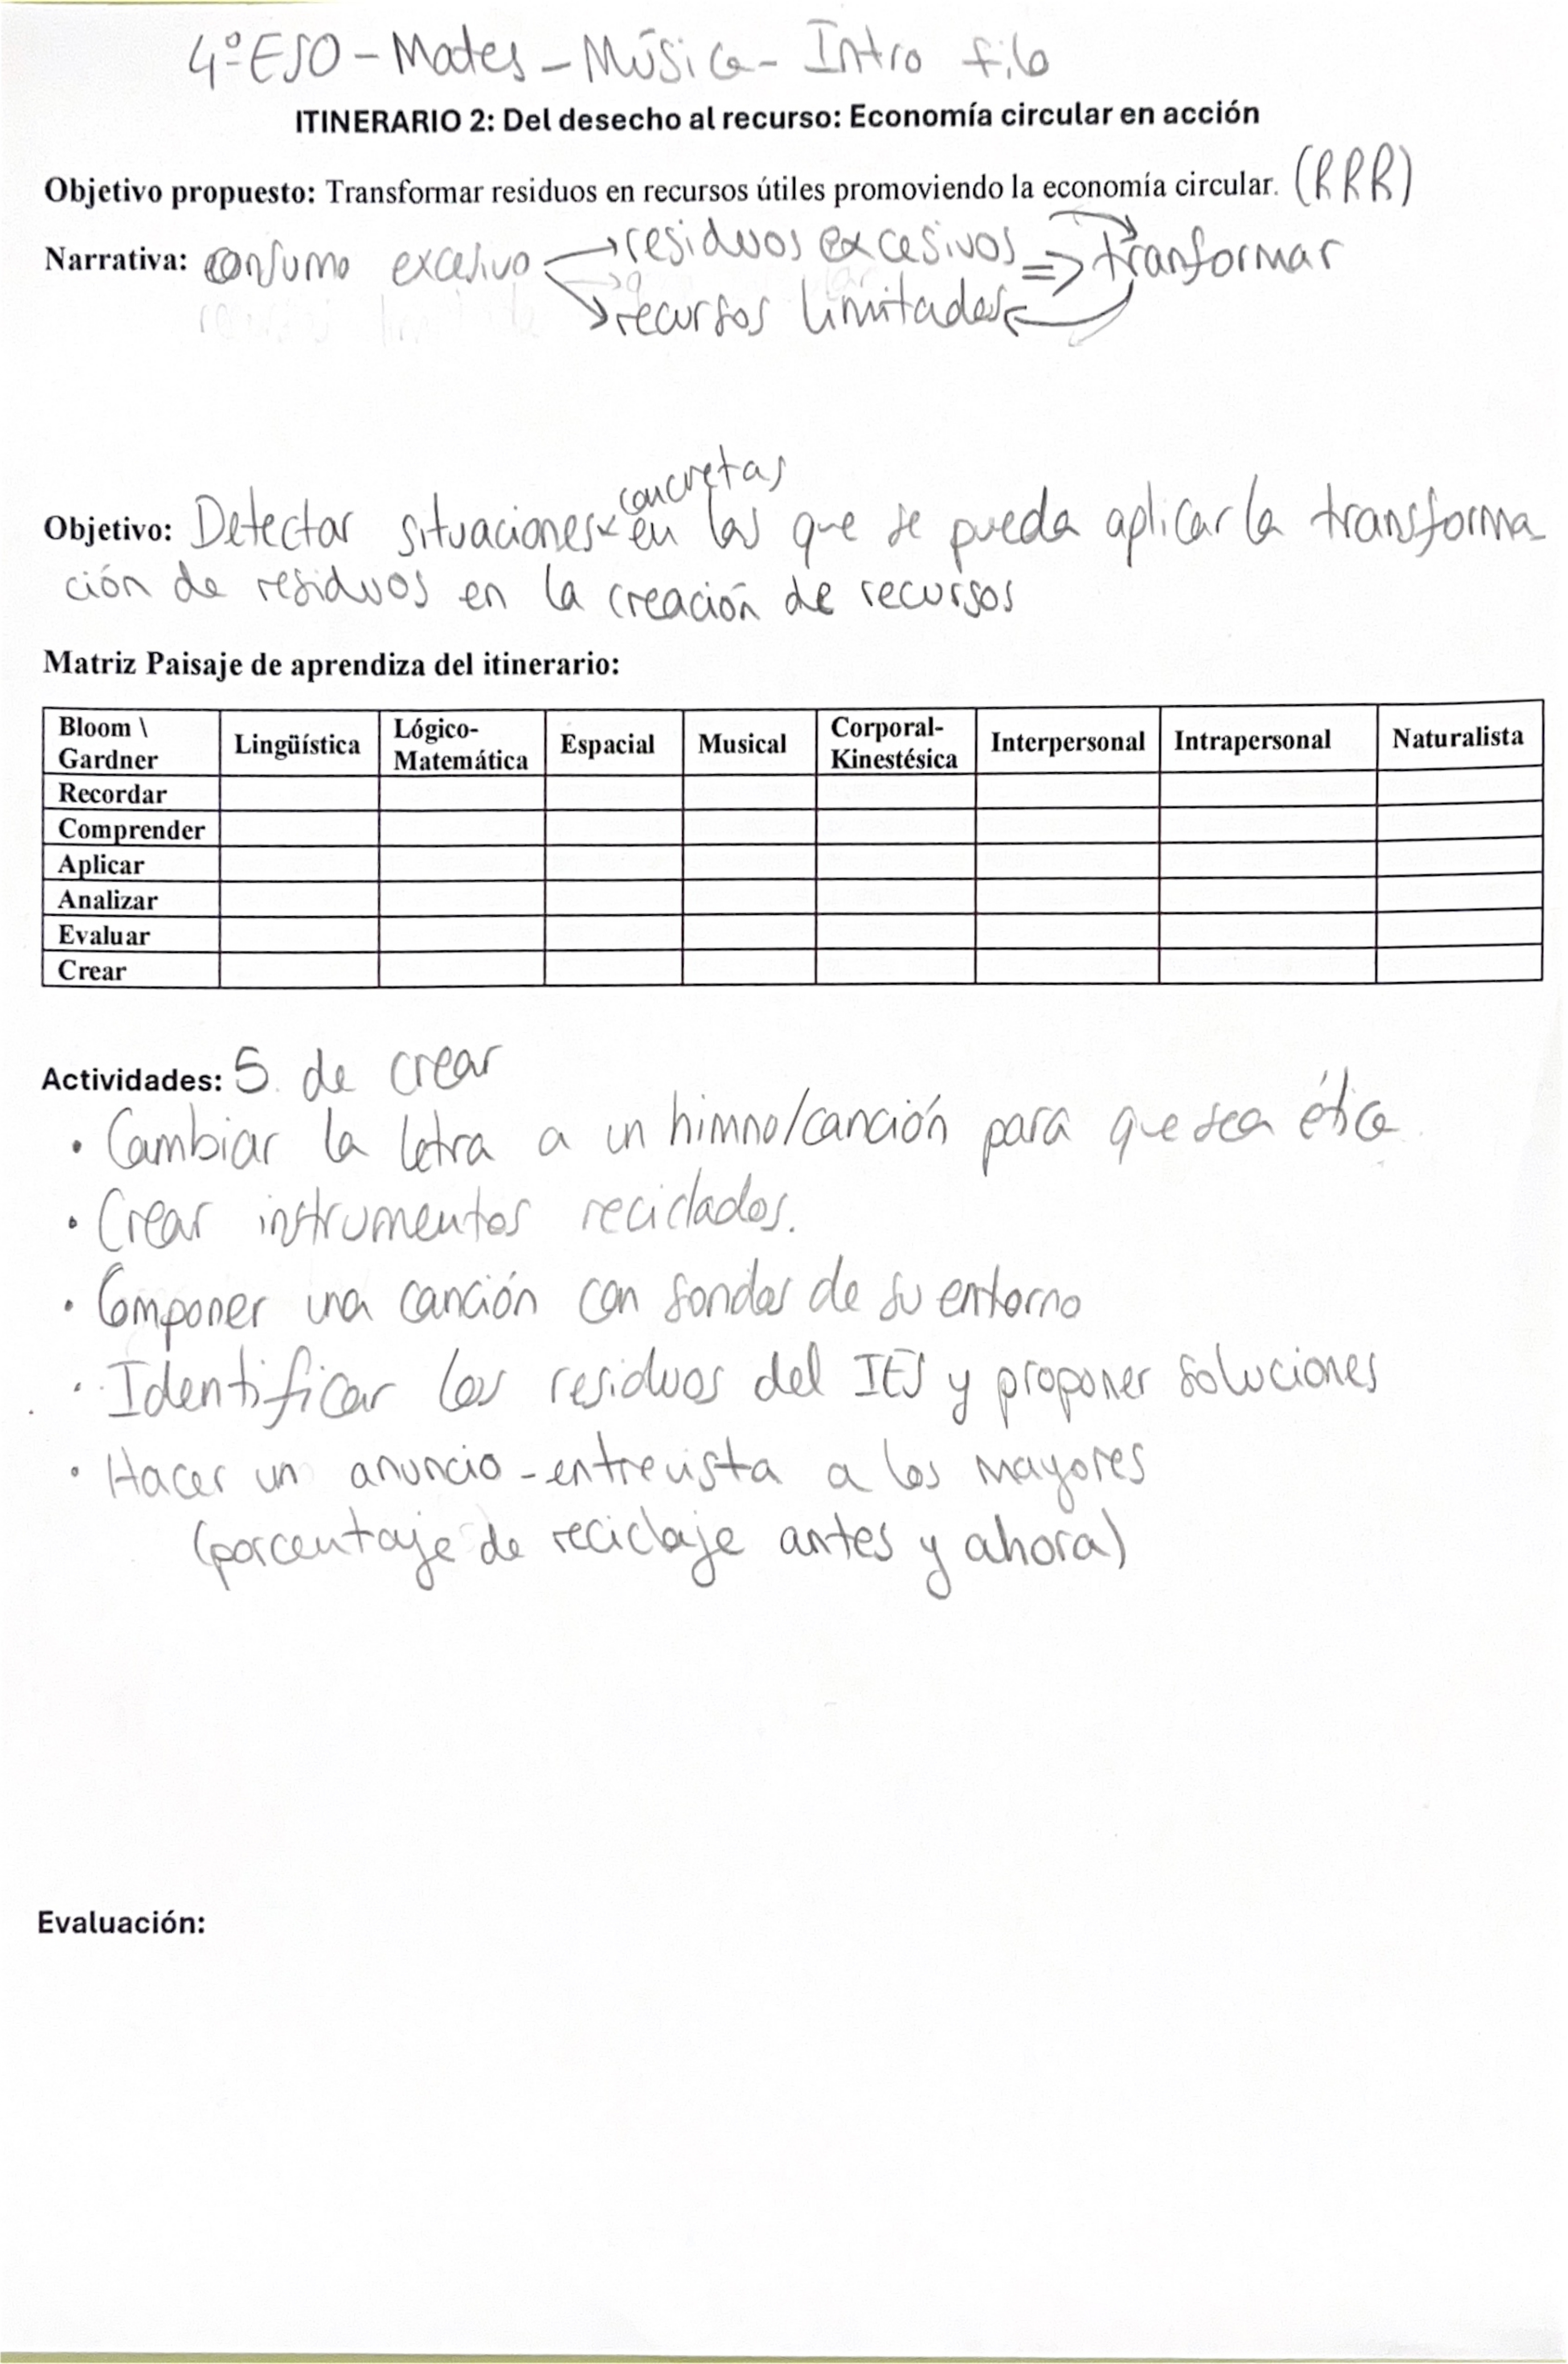 4º ESO - Mates - Música - Intro filo
ITINERARIO 2: Del desecho al recurso: Economía circular en acción
Objetivo propuesto: Transformar residuos en recursos útiles promoviendo la economía circular. (RRR)
Narrativa: consumo excesivo → residuos excesivos => tranformar
→ recursos limitados
concretas
Objetivo: Detectar situaciones en las que se pueda aplicar la transforma-
ción de residuos en la creación de recursos
Matriz Paisaje de aprendiza del itinerario:
Bloom \ Gardner Lingüística Lógico-Matemática Espacial Musical Corporal-Kinestésica Interpersonal Intrapersonal Naturalista
Recordar
Comprender
Aplicar
Analizar
Evaluar
Crear
Actividades: 5. de crear
• Cambiar la letra a un himno/canción para que sea ética
• Crear instrumentos reciclados.
• Componer una canción con sonidos de su entorno
• Identificar los residuos del IES y proponer soluciones
• Hacer un anuncio - entrevista a los mayores
(porcentaje de reciclaje antes y ahora)
Evaluación: